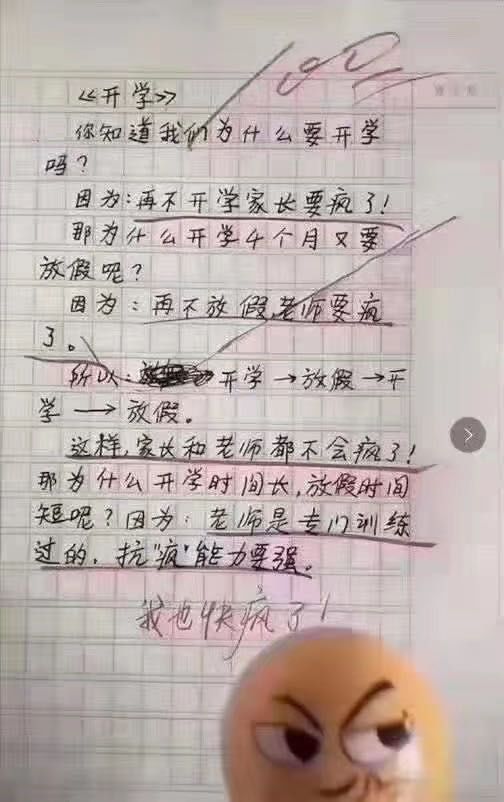 100
《开学》
你知道我们为什么要开学
吗？
因为：再不开学家长要疯了！
那为什么开学4个月又要
放假呢？
因为：再不放假，老师要疯
了。
所以：开学→放假→开
学→放假。
这样，家长和老师都不会疯了！
那为什么开学时间长，放假时间
短呢？因为：老师是专门训练
过的，抗“疯”能力要强。
我也快疯了！